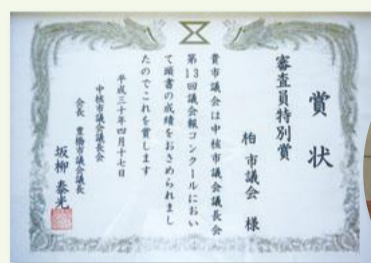 賞状
審査員特別賞
柏市議会 様
貴市議会は中核市議会議長会
第13回議会報コンクールにおい
て頭書の成績をおさめられまし
たのでこれを賞します
平成三十年四月十七日
中核市議会議長会
会長 豊橋市議会議長
坂柳 泰光